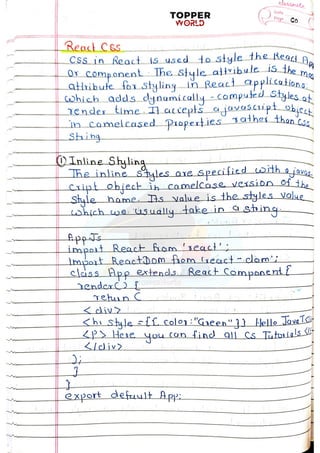 classmate
Date
Page 60
TOPPER
WORLD
React CSS
CSS in React is used to style the React App
or component. The style attribute is the mos
attribute for styling in React applications,
which adds dynamically-computed styles at
render time. It accepts a javascript object
in camelcased properties rather than CSS
string.
① Inline Styling
The inline styles are specified with a javas-
cript object in camelcase version of the
style name. Its value is the style's value
which we usually take in a string.
App.Js
import React from 'react';
Import ReactDOM from 'react-dom';
class App extends React Component {
render() {
return (
<div>
<h1 style={{ color: "Green" }} Hello JavaT
<p> Here you can find all CS Tutorials
</div>
);
}
}
export default App;